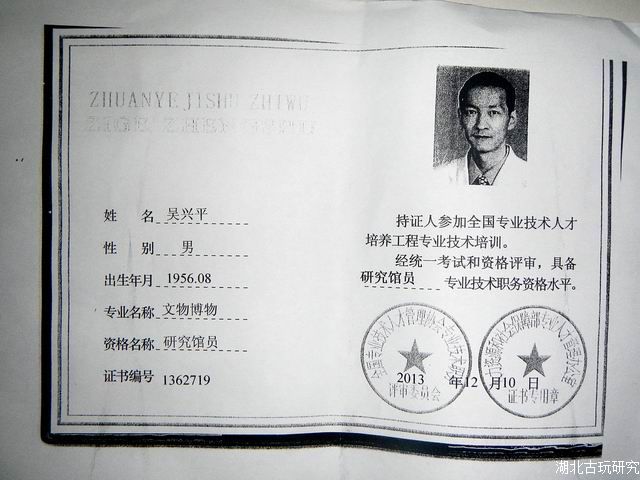 ZHUANYE JISHU ZHIWU
姓 名 吴兴平
性 别 男
出生年月 1956.08
专业名称 文物博物
资格名称 研究馆员
证书编号 1362719
持证人参加全国专业技术人才
培养工程专业技术培训。
经统一考试和资格评审，具备
研究馆员 专业技术职务资格水平。
评审委员会
证书专用章
2013 年 12 月 10 日
湖北古玩研究